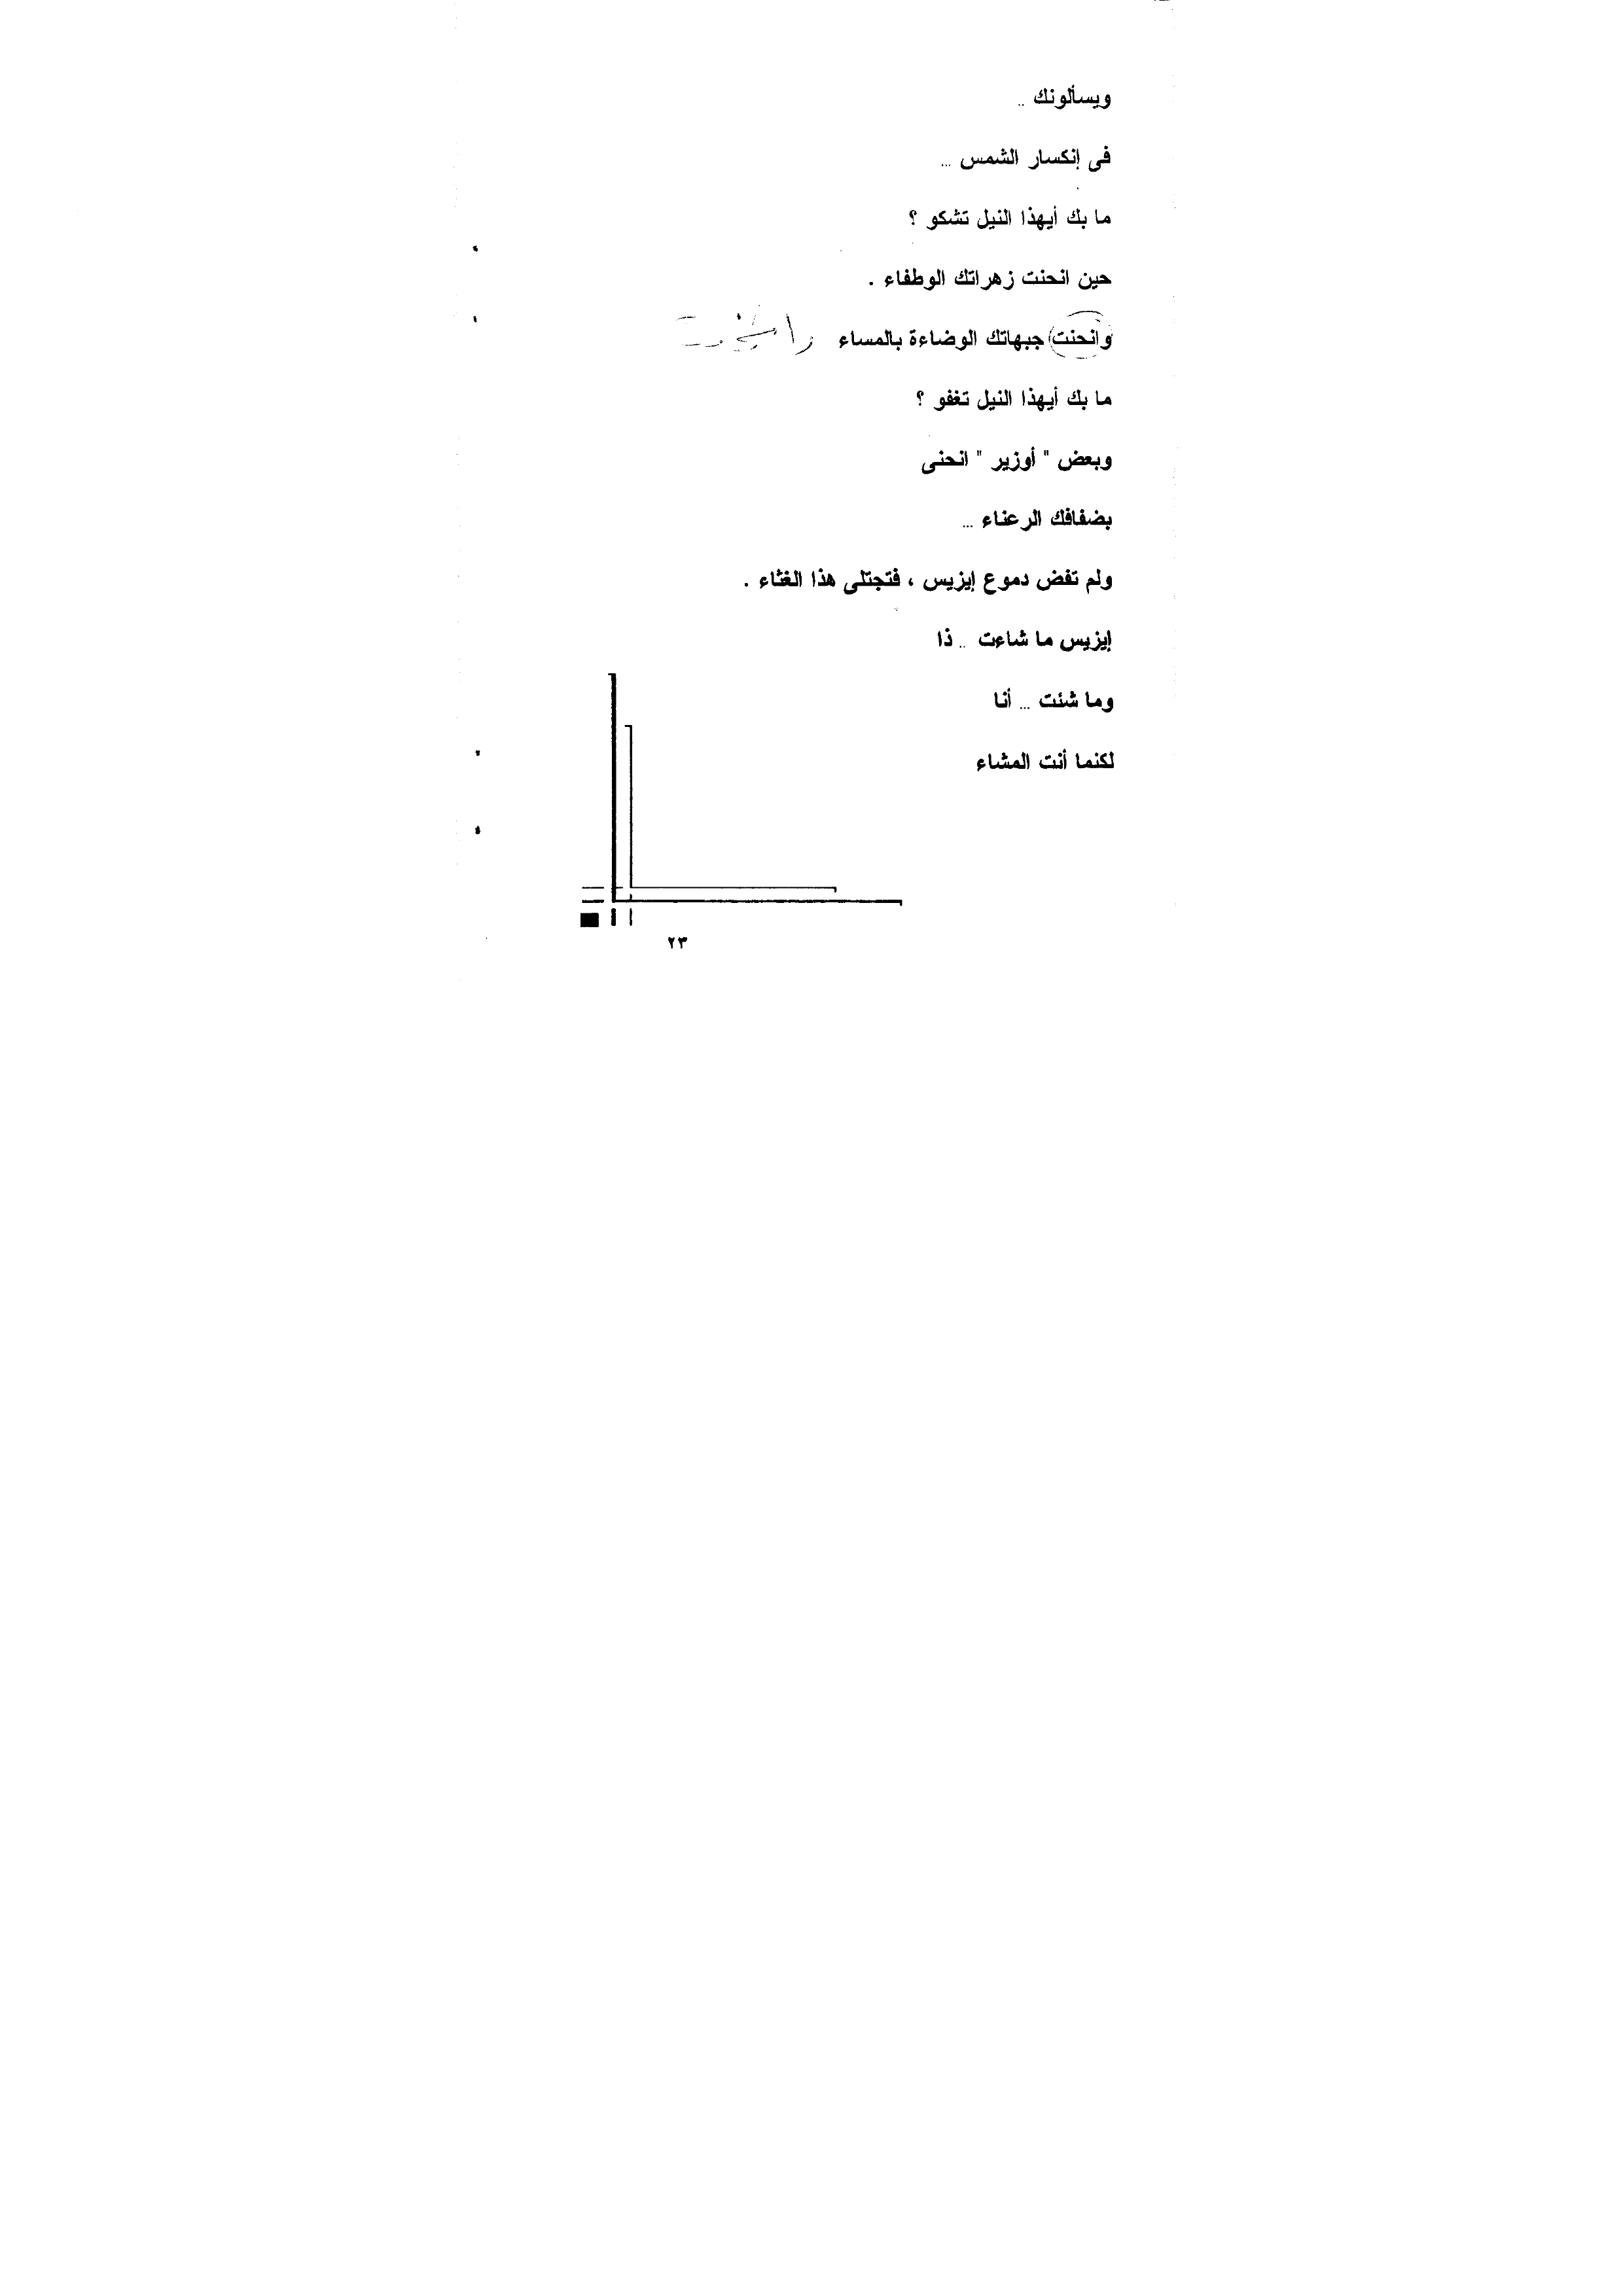 ويسألونك ..
فى إنكسار الشمس ...
ما بك أيهذا النيل تشكو ؟
حين انحنت زهراتك الوطفاء .
وانحنت جبهاتك الوضاءة بالمساء
ما بك أيهذا النيل تغفو ؟
وبعض " أوزير " انحنى
بضفافك الرعناء ...
ولم تفض دموع إيزيس ، فتجتلى هذا الغثاء .
إيزيس ما شاءت .. ذا
وما شئت ... أنا
لكنما أنت المشاء
٢٣